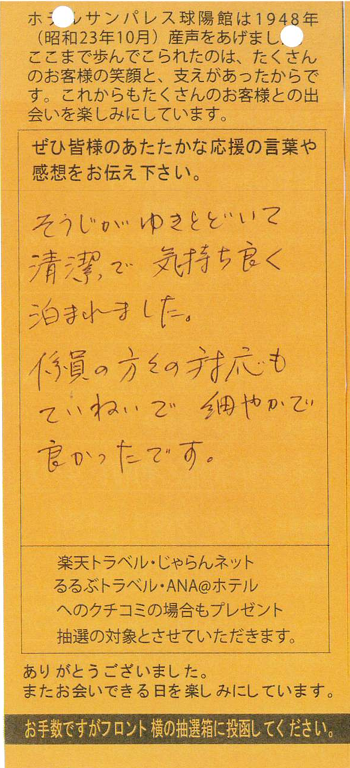 ホテルサンパレス球陽館は1948年
（昭和23年10月）産声をあげました。
ここまで歩んでこられたのは、たくさん
のお客様の笑顔と、支えがあったからで
す。これからもたくさんのお客様との出
会いを楽しみにしています。
ぜひ皆様のあたたかな応援の言葉や
感想をお伝え下さい。
そうじがゆきとどいて
清潔で 気持ち良く
泊まれました。
係員の方々の対応も
ていねいで 細やかで
良かったです。
楽天トラベル・じゃらんネット
るるぶトラベル・ANA@ホテル
へのクチコミの場合もプレゼント
抽選の対象とさせていただきます。
ありがとうございました。
またお会いできる日を楽しみにしています。
お手数ですがフロント横の抽選箱に投函してください。